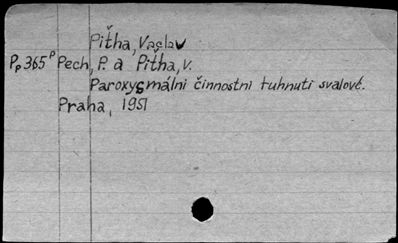 Piťha, Vaclav
Pp365P Pech, P. a Piťha, V.
Paroxysmálni činnostni tuhnuti svalové.
Praha, 1951